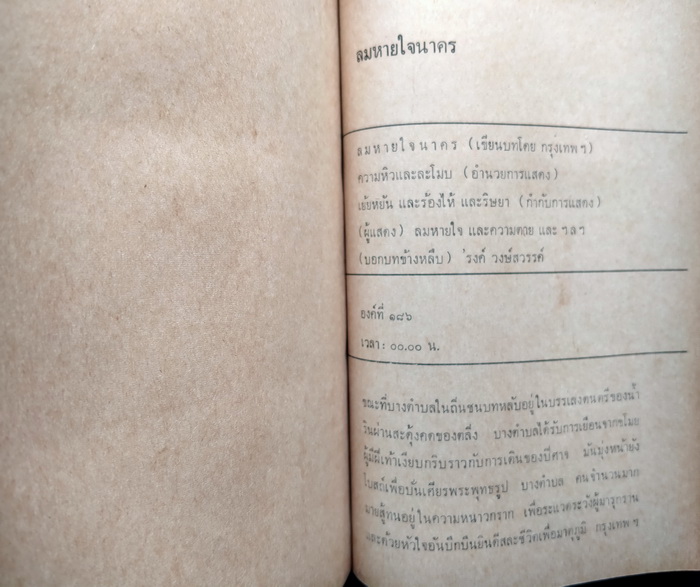 ลมหายใจนาคร
ลมหายใจนาคร (เขียนบทโดย กรุงเทพฯ)
ความหิวและละโมบ (อำนวยการแสดง)
เย้ยหยัน และร้องไห้ และริษยา (กำกับการแสดง)
(ผู้แสดง) ลมหายใจ และความตาย และ ฯลฯ
(บอกบทข้างหลืบ) 'รงค์ วงษ์สวรรค์
องค์ที่ ๑๘๖
เวลา: ๐๐.๐๐ น.
ขณะที่บางตำบลในถิ่นชนบทหลับอยู่ในบรรเลงดนตรีของน้ำ
รินผ่านสะดุ้งคดของตลิ่ง บางตำบลได้รับการเยือนจากขโมย
ผู้มีฝีเท้าเงียบกริบราวกับการเดินของปีศาจ มันมุ่งหน้ายัง
โบสถ์เพื่อบั่นเศียรพระพุทธรูป บางตำบล คนจำนวนมาก
นายสู้ทนอยู่ในความหนาวกราก เพื่อระแวดระวังผู้มารุกราน
และด้วยหัวใจอันบึกบึนยินดีสละชีวิตเพื่อมาตุภูมิ กรุงเทพฯ